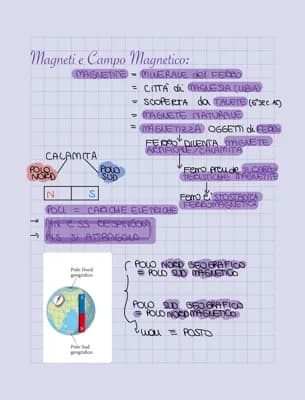 Magneti e Campo Magnetico:
MAGNETITE = MINERALE del FERRO
= CITTÀ di MAGNESIA (LIBIA)
= SCOPERTA da TALETE (6° sec. AC)
= MAGNETE NATURALE
= MAGNETIZZA OGGETTI di FERRO
FERRO DIVENTA MAGNETE
ARTIFICIALE/CALAMITA
CALAMITA
POLO NORD
POLO SUD
FERRO
MAGNETICHE
N S
FERRO È SOSTANZA
FERROMAGNETICA
POLI = CARICHE ELETTRICHE
→ NN E SS RESPINGONO
→ NS SI ATTRAGGONO
Polo Nord
geografico
POLO NORD GEOGRAFICO
= POLO SUD MAGNETICO
POLO SUD GEOGRAFICO
= POLO NORD MAGNETICO
Polo Sud
geografico